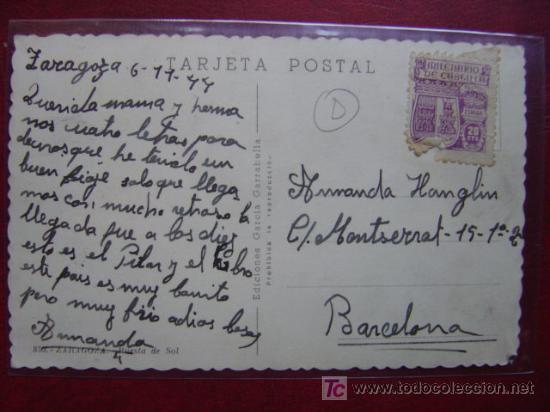 Zaragoza 6-11-44
TARJETA POSTAL
Querida mama y herma
nos cuatro letras para
deciros que he tenido un
buen biaje solo que llega
mos con mucho retraso la
llegada fue a las diez
esto es el Pilar y el Ebro
este pais es muy bonito
pero muy frio adios besos
Armanda
ZARAGOZA. Puesta de Sol
Ediciones García Garrabella
Prohibida la reproducción
D
MILENARIO
DE CASTILLA
20
Armanda Hanglin
C/. Montserrat-15-1º-2ª
Barcelona
todocoleccion
www.todocoleccion.net